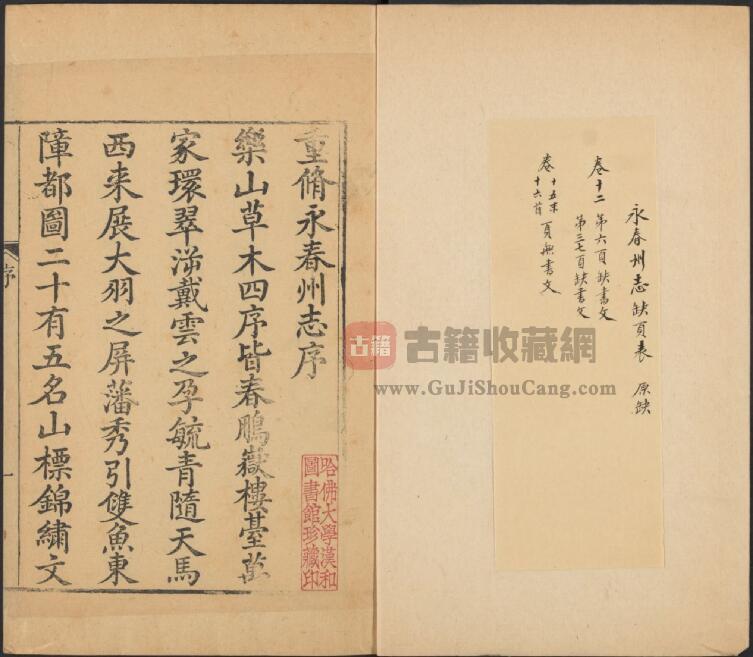 永春州志缺頁表 原缺
卷十二 第六頁缺書文
第三七頁缺書文
卷十五末
十六首 頁無書文
重脩永春州志序
樂山草木四序皆春鵬嶽樓臺萬
家環翠溯戴雲之孕毓青隨天馬
西来展大羽之屏藩秀引雙魚東
障都圖二十有五名山標錦繡文
序
一
哈佛大學漢和
圖書館珍藏印
古籍
古籍收藏網
www.GuJiShouCang.com